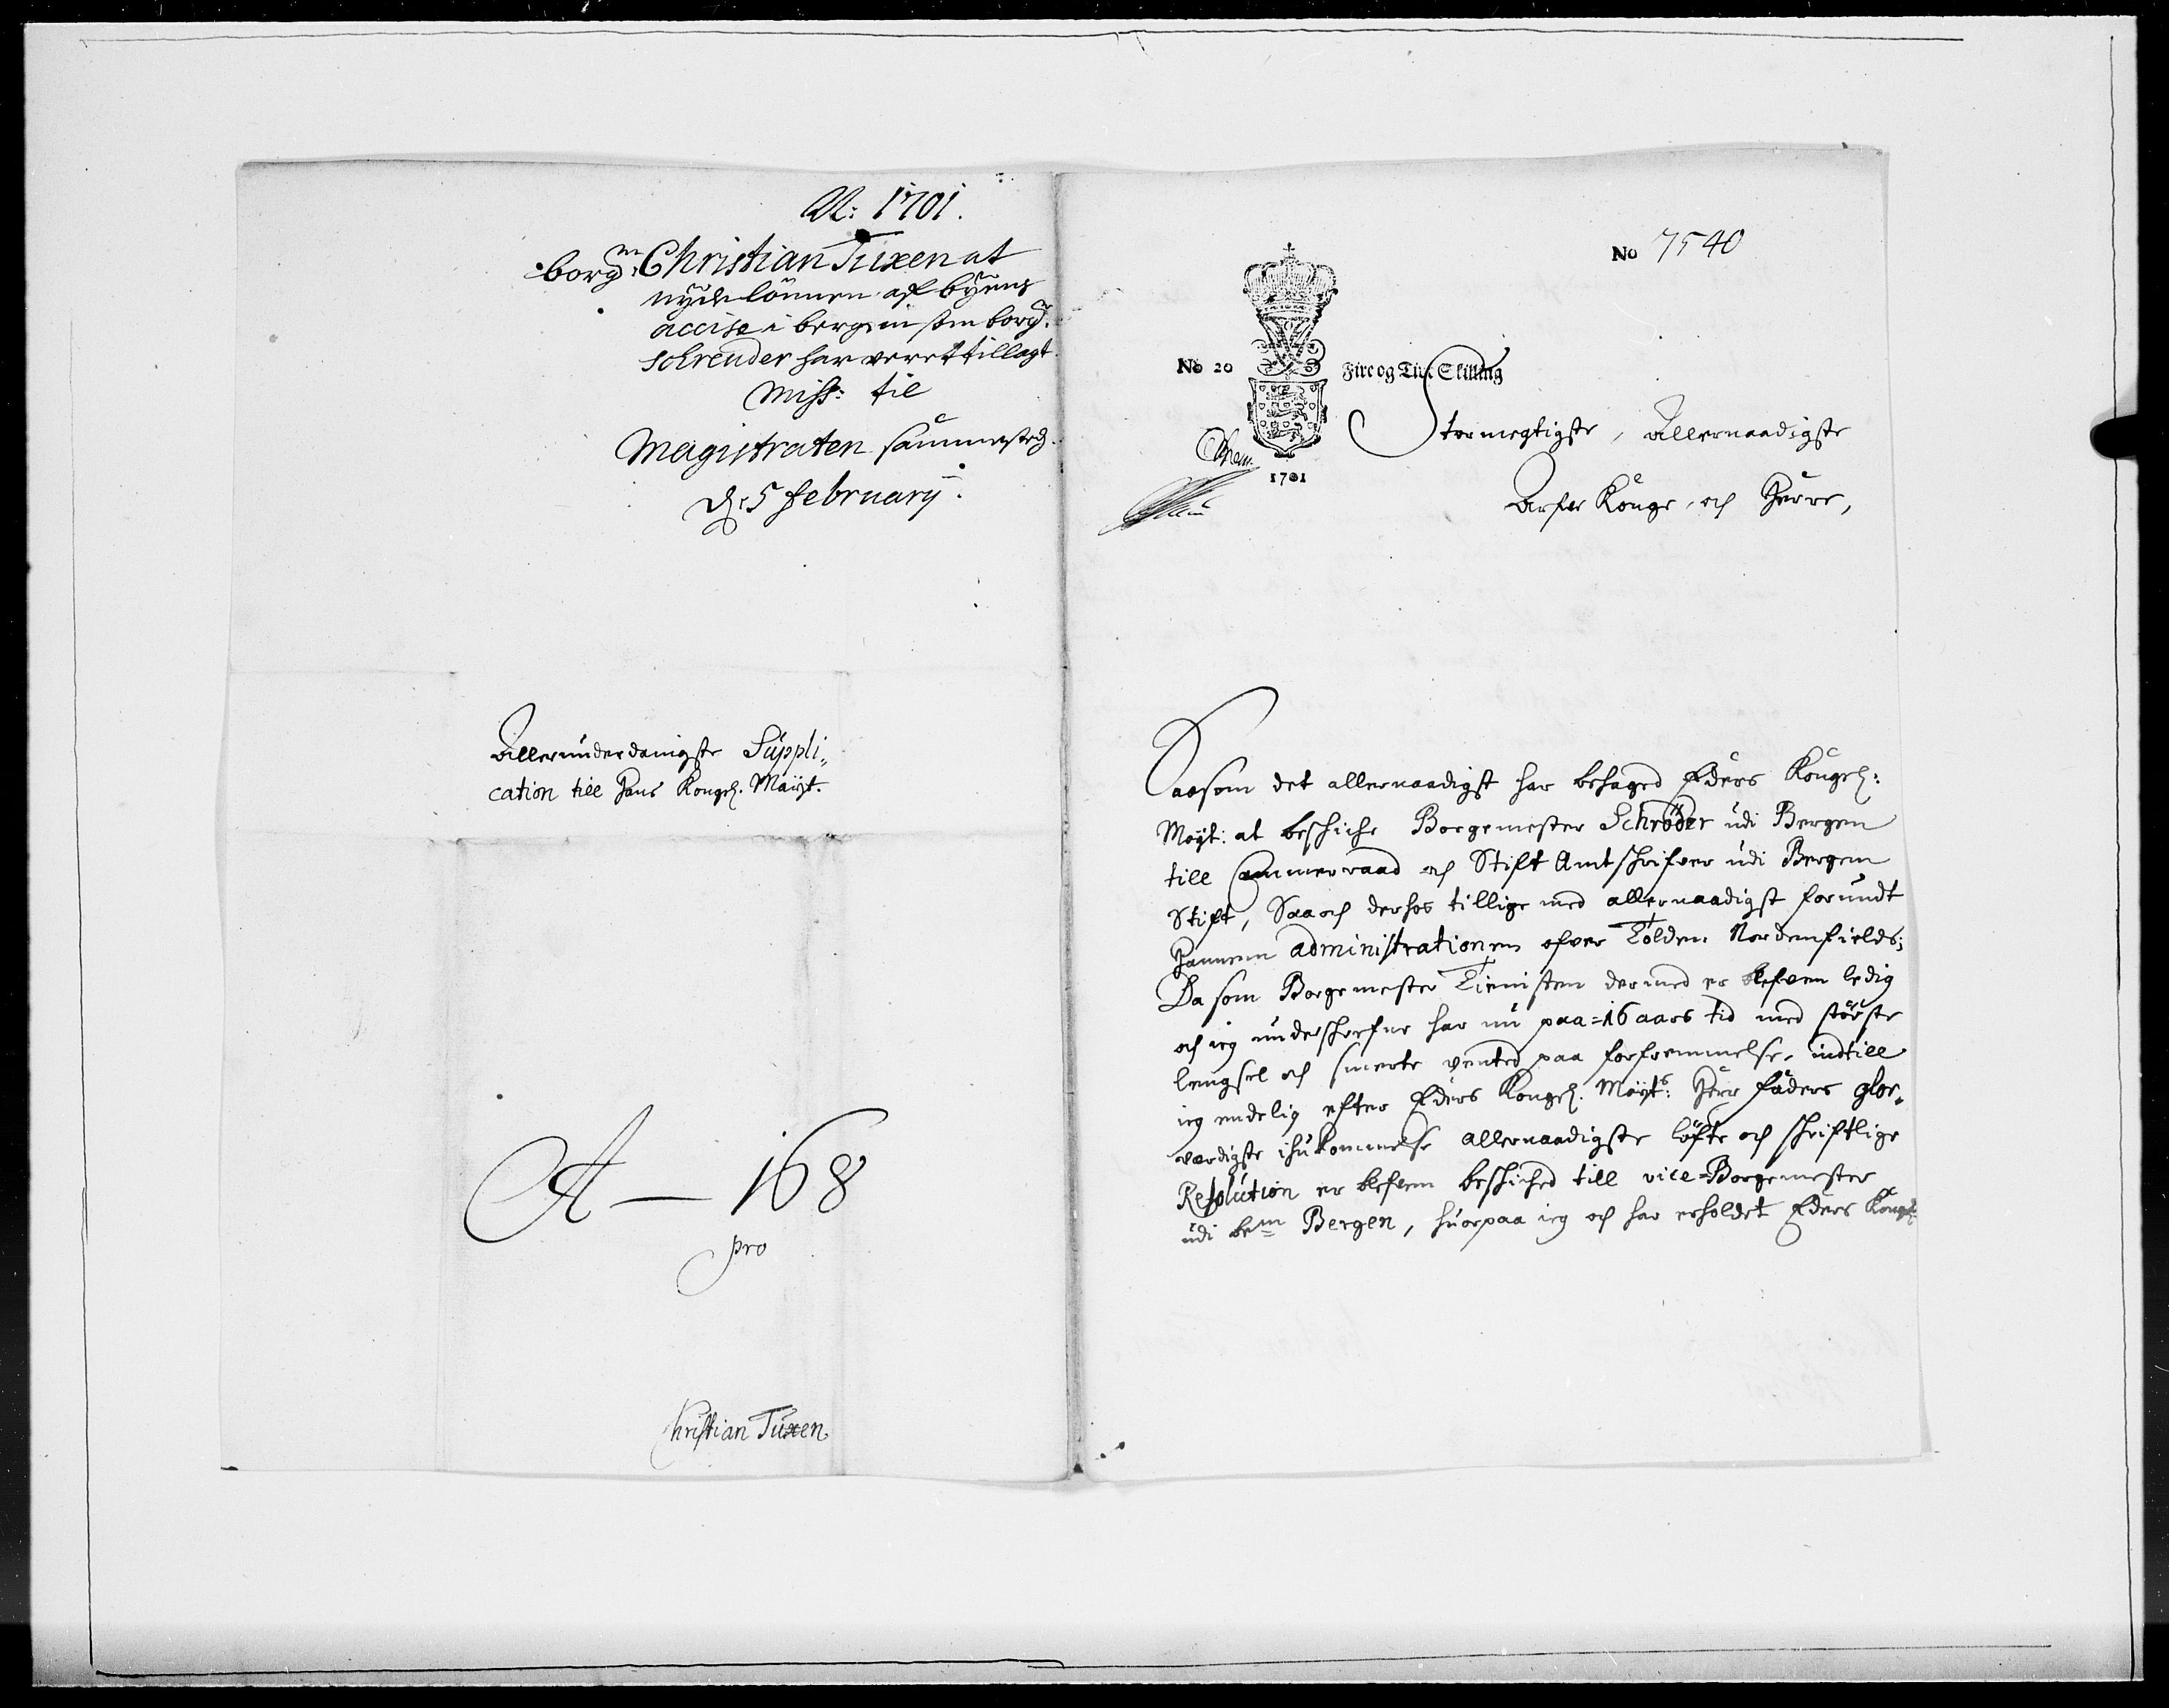 A: 1701.
borgm: Christian Tuxen at
nyde lönnen af byens
accise i bergen som borgm:
schreuder har veret tillagt.
Miss: til
Magistraten sammested.
d: 5 february.
Allerunderdanigste Suppli,,
cation till Hans Kongel. Mayt.
A — 168
pro
Christian Tuxen
No 7540
No 20
Fire og Tive Skilling
1701
Stormegtigste, Allernaadigste
Arfve Konge, och Herre,
Saasom det allernaadigst har behaged Eders Kongel:
Mayt: at beschiche Borgemester Schröder udi Bergen
till Cammerraad och Stift Amtschrifver udi Bergen
Stift, Saa och derhos tillige med allernaadigst forundt
Hannem administrationen ofver Tolden Nordenfields;
Da som Borgemester Tienisten dermed er blefven ledig
och ieg underschrefne har nu paa =16 aars tid med störste
lengsel och smerte vented paa forfremmelse, indtill
ieg endelig efter Eders Kongel. Mayts: Herr faders glor,,
værdigste ihukommelse allernaadigste löfte och schriftlige
Resolution er blefven beschiched till vice=Borgemester
udi bem Bergen, huorpaa ieg och har erholdet Eders Kongl: